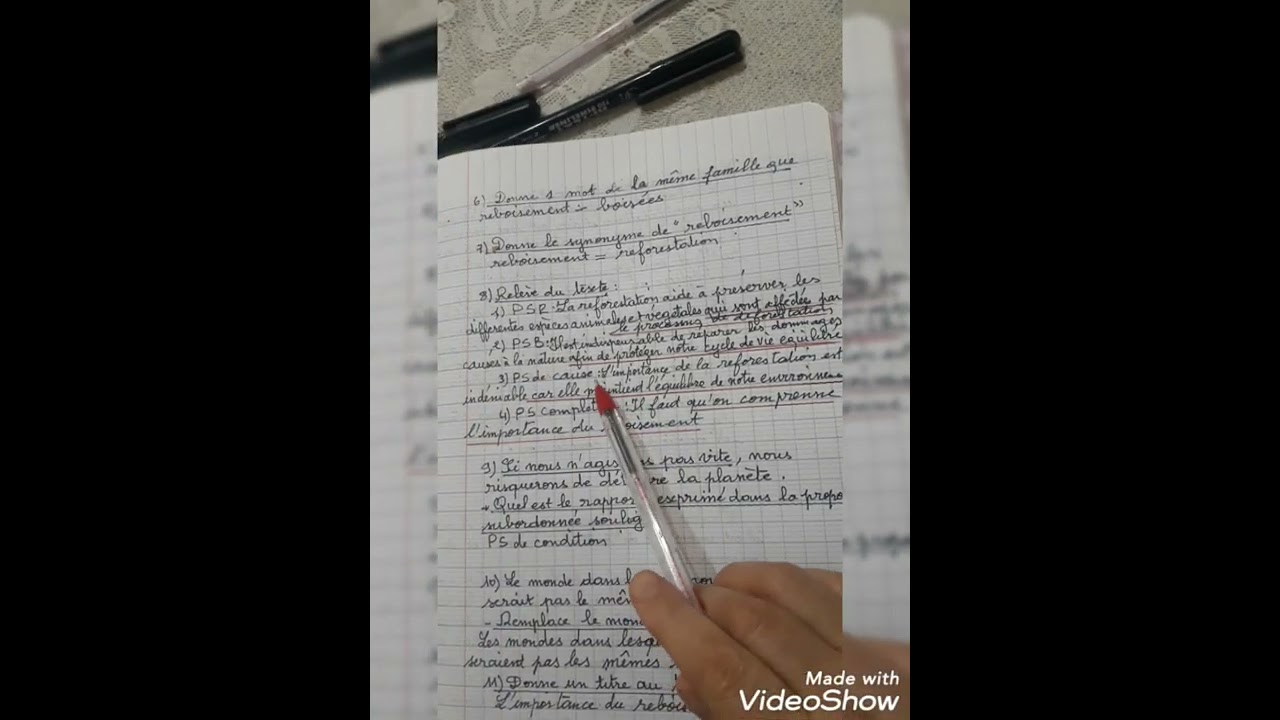 6) Donne 1 mot de la même famille que
reboisement = boisées
7) Donne le synonyme de "reboisement"
reboisement = reforestation
8) Relève du texte :
1) PSR : La reforestation aide à préserver les
différentes espèces animales et vegetales qui sont affectées par
le processus de déforestation
2) PSB : Il est indispensable de réparer les dommages
causés à la nature afin de protéger notre cycle de vie équilibré
3) PS de cause : L'importance de la reforestation est
indéniable car elle maintient l'équilibre de notre environneme
4) PS complét : Il faut qu'on comprenne
l'importance du oisement
9) Si nous n'agis ns pas vite, nous
risquerons de dé re la planète.
Quel est le rappor exprimé dans la propo
subordonnée soulig
PS de condition
10) Le monde dans l
serait pas le mêm
- Remplace le mond
Les mondes dans lesq
seraient pas les mêmes
11) Donne un titre au
L'importance du rebois
Made with
VideoShow